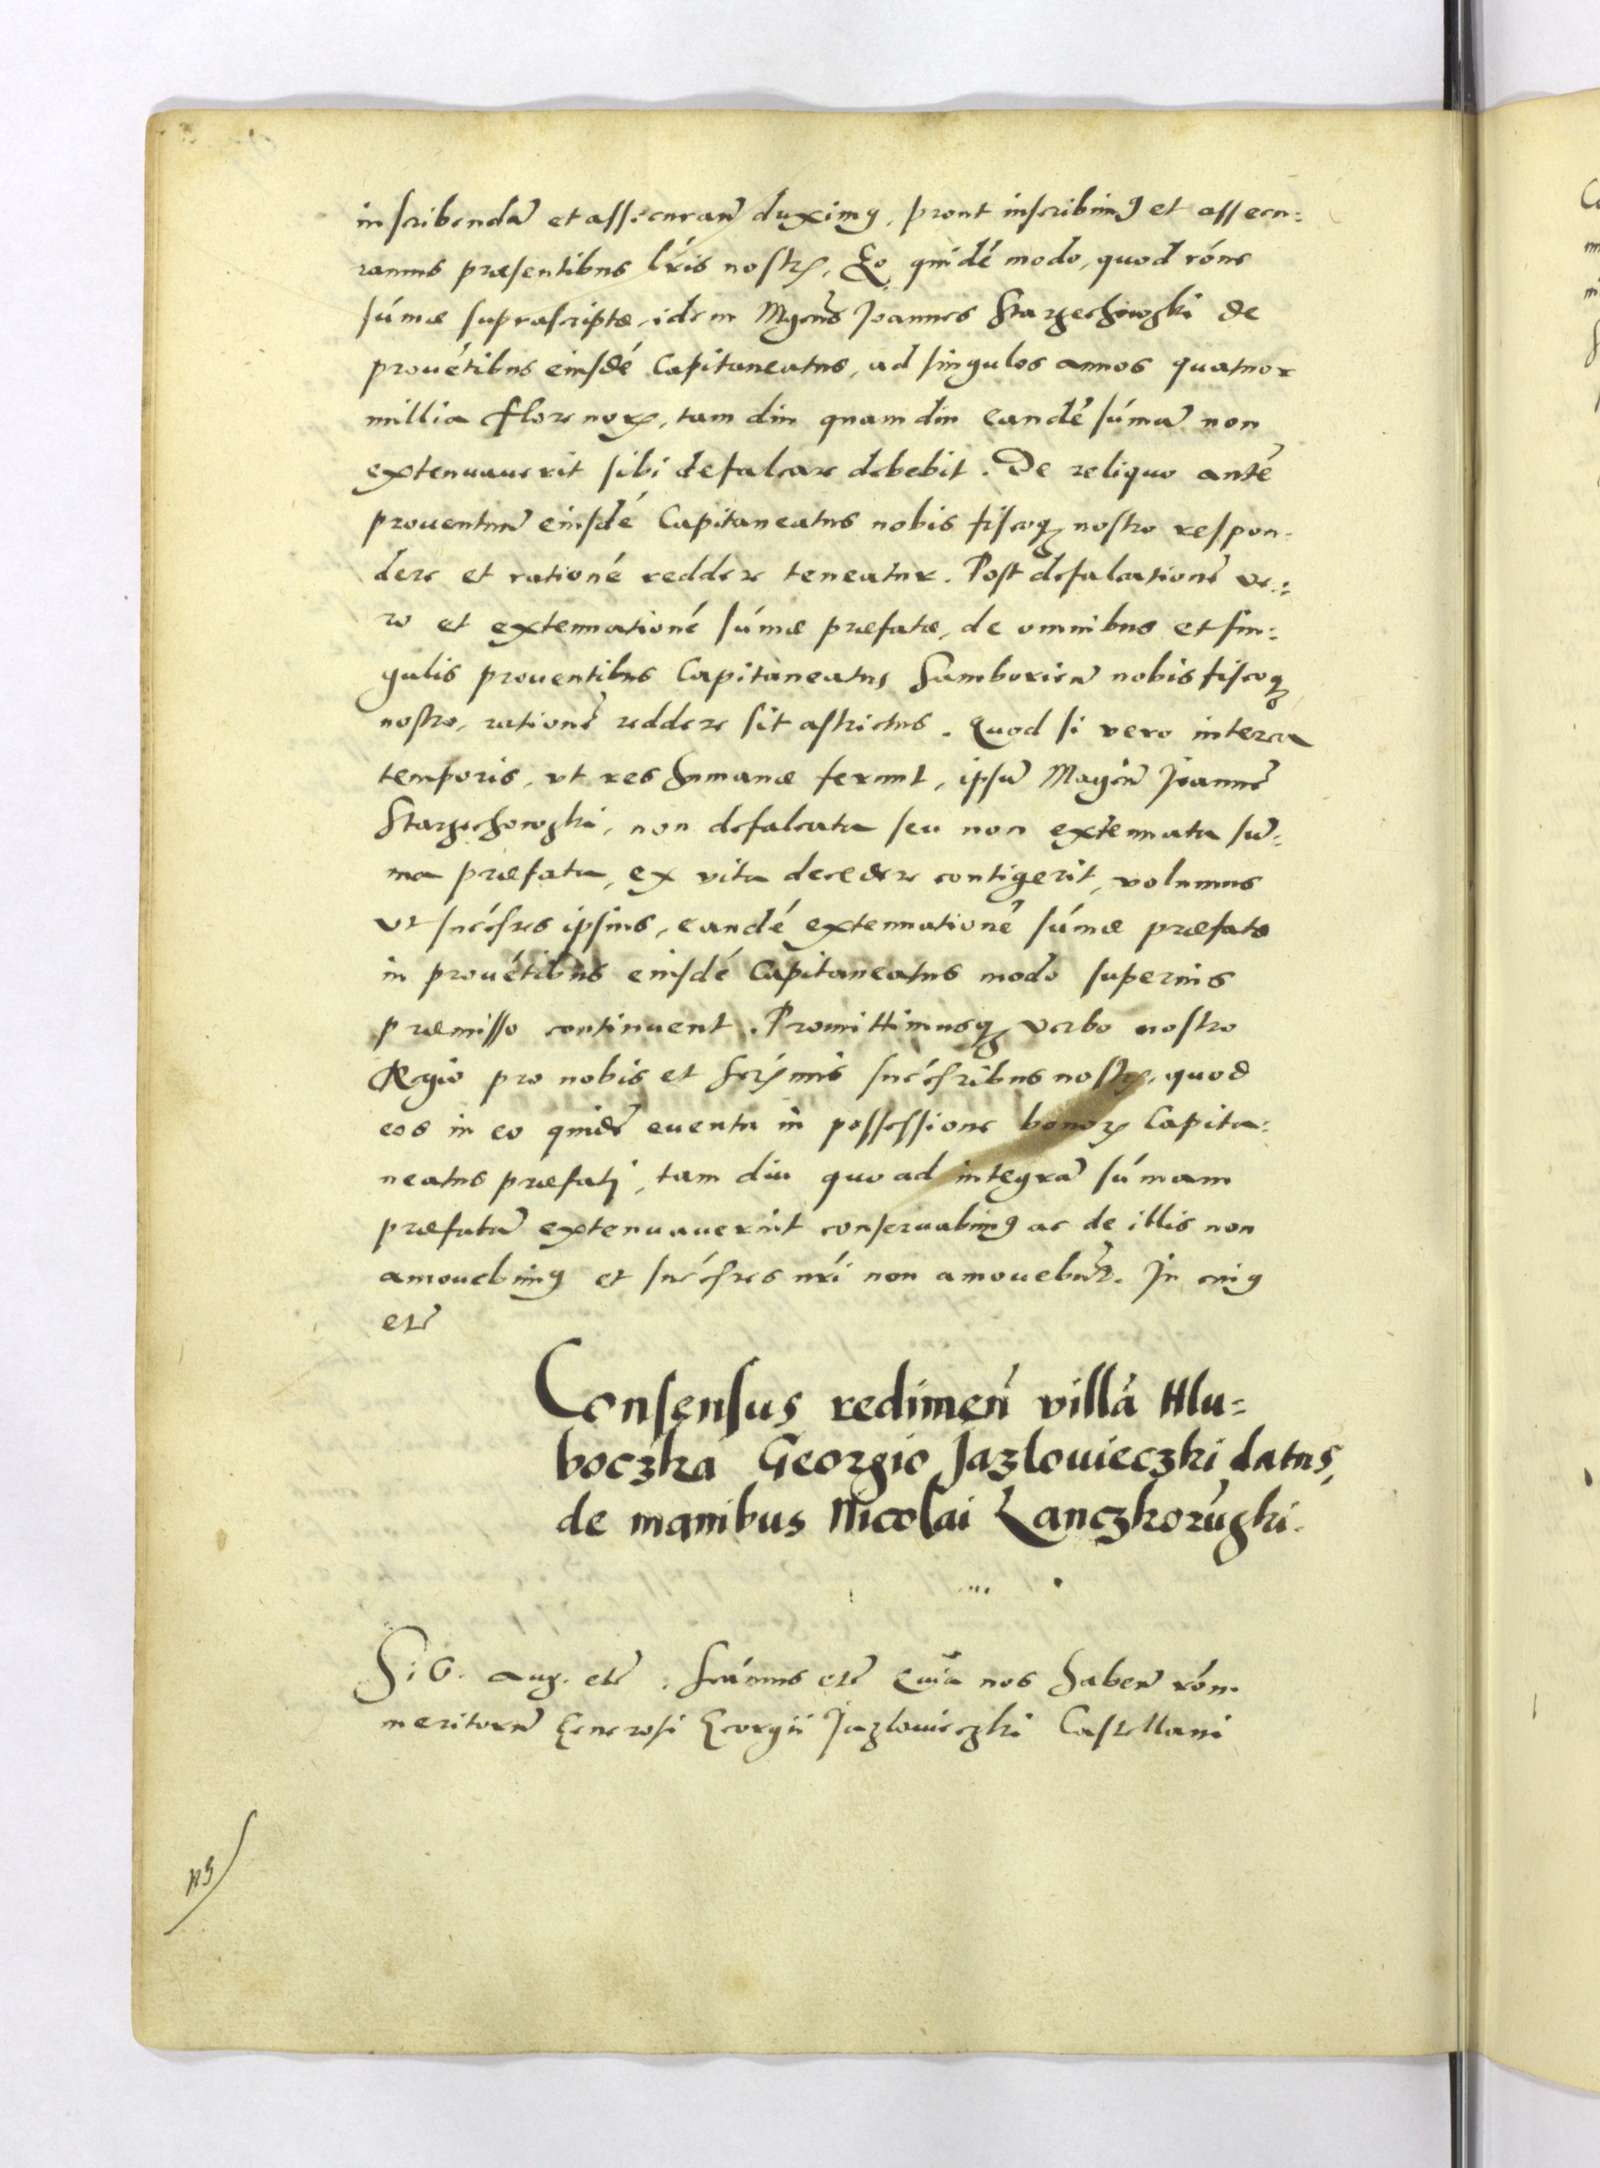 inscribendā et assecuran̄ duximꝰ, prout inscribimꝰ et assecu:
ramus præsentibus l̃ris nostrꝭ. Eo quidē modo, quod rōne
sūmæ suprascriptæ, idem Mg̃cus Joannes Starzechowski de
prouētibus eiusdē Capitaneatus, ad singulos annos quatuor
millia florenoꝝ, tam diu quam diu eandē sūmā non
extenuauerit sibi defalcare debebit. De reliquo autē
prouentuū eiusdē Capitaneatus nobis fiscoqꝫ nostro respon:
dere et rationē reddere teneatur. Post defalcationē ve:
ro et extenuationē sūmæ præfatæ, de omnibus et sin:
gulis prouentibus Capitaneatus Samborien̄ nobis fiscoqꝫ
nostro, rationē reddere sit astrictus. Quod si vero interea
temporis, vt res humanæ ferunt, ipsū Mag̃cū Joannē
Starzechowski, non defalcata seu non extenuata sū:
ma præfata, ex vita decedere contigerit, volumus
vt succ̃res ipsius, eandē extenuationē sūmæ præfatæ
in prouētibus eiusdē Capitaneatus modo superius
præmisso continuent. Promittimusqꝫ verbo nostro
Regio pro nobis et Ser̃mis succ̃ribus nostrꝭ, quod
eos in eo quidē euentu in possessione bonoꝝ Capita:
neatus præfati, tam diu quoad integrā sūmam
præfatā extenuauerint conseruabimꝰ ac de illis non
amouebimꝰ et succ̃res nr̃i non amouebūt. In cuiꝰ
etc̄
Consensus redimen̄ villā Hlu=
boczka Georgio Jazlouieczki datus,
de manibus Nicolai Lanczkorūski.
S: G. Aug. etc̄. Sc̄āmus etc̄ Quia nos haben̄ rōm
meritorū Generosi Georgii Jazlouieczki Castellani